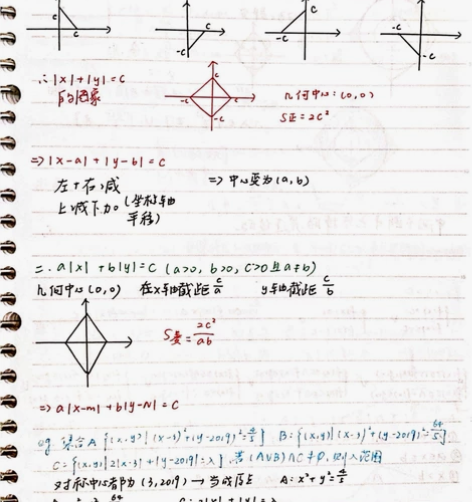 c
c
c
-c
c
-c
-c
-c
∴|x|+|y|=c
的图象
c
-c
c
-c
几何中心:(0,0)
S正=2c²
⇒|x-a|+|y-b|=c
左+右减
⇒中心变为(a,b)
上减下加(坐标轴
平移)
二.a|x|+b|y|=c (a>0, b>0, c>0且a≠b)
几何中心(0,0) 在x轴截距c/a y轴截距c/b
S菱=2c²/ab
⇒a|x-m|+b|y-N|=c
eg. 集合A{(x,y)|(x-3)²+(y-2019)²≤4/5} B={(x,y)|(x-3)²+(y-2019)²≤64/5}
C={(x,y)|2|x-3|+|y-2019|=λ},若(A∪B)∩C≠Φ,则λ范围
对称中心都为(3,2019)→当成原点 A:x²+y²=4/5
C:2|x|+|y|=λ